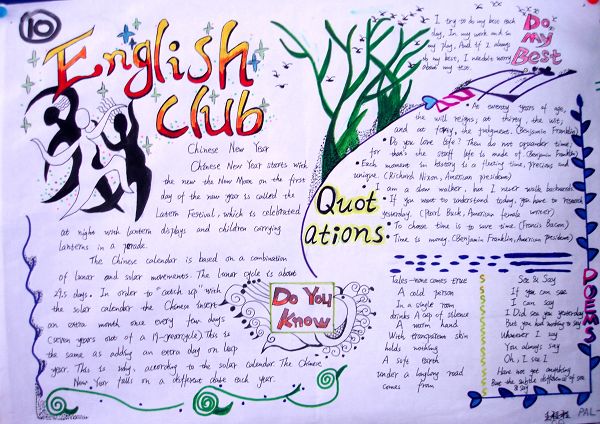 10
English
Club
Chinese New Year
Chinese New Year starts with
the new the New Moon on the first
day of the new year is called the
Latern Festival, which is celebrated
at night with lantern displays and children carrying
lanterns in a parade.
The Chinese calendar is based on a combination
of lunar and solar movements. The lunar cycle is about
29.5 days. In order to "catch up" with
the solar calendar the Chinese insert
an extra month once every few days
(seven years out of a 19-yearcycle) This is
the same as adding an extra day on leap
year. This is why, according to the solar calendar. The Chinese
New Year falls on a different date each year.
Do You
Know
I try to do my best each
day, In my work and in
my play, And if I always
do my best, I needn't worry
about my test.
Do
My
Best
Quot
ations:
At twenty years of age,
the will reigns; at thirty, the wit;
and at forty, the judgment. (Benjamin Franklin)
Do you love life? Then do not squander time,
for that's the stuff life is made of. (Benjamin Franklin)
Each moment in history is a fleeting time, precious and
unique. (Richard Nixon, American president)
I am a slow walker, but I never walk backwards.
If you want to understand today, you have to research
yesterday. (Pearl Buck, American female writer)
To choose time is to save time. (Francis Bacon)
Time is money. (Benjamin Franklin, American president)
POEMS
Tales-none comes true
A cold person
In a single room
drinks A cup of silence
A warm hand
With transpierm skin
holds nothing
A soft earth
under a laughing road
comes from
See & Say
If you can see
I can say
I Did see you yesterday
But you had nothing to say
Whenever I say
You always say
Oh, I see!
Have not got anything
But the subtle difference of see
& say
PAL-